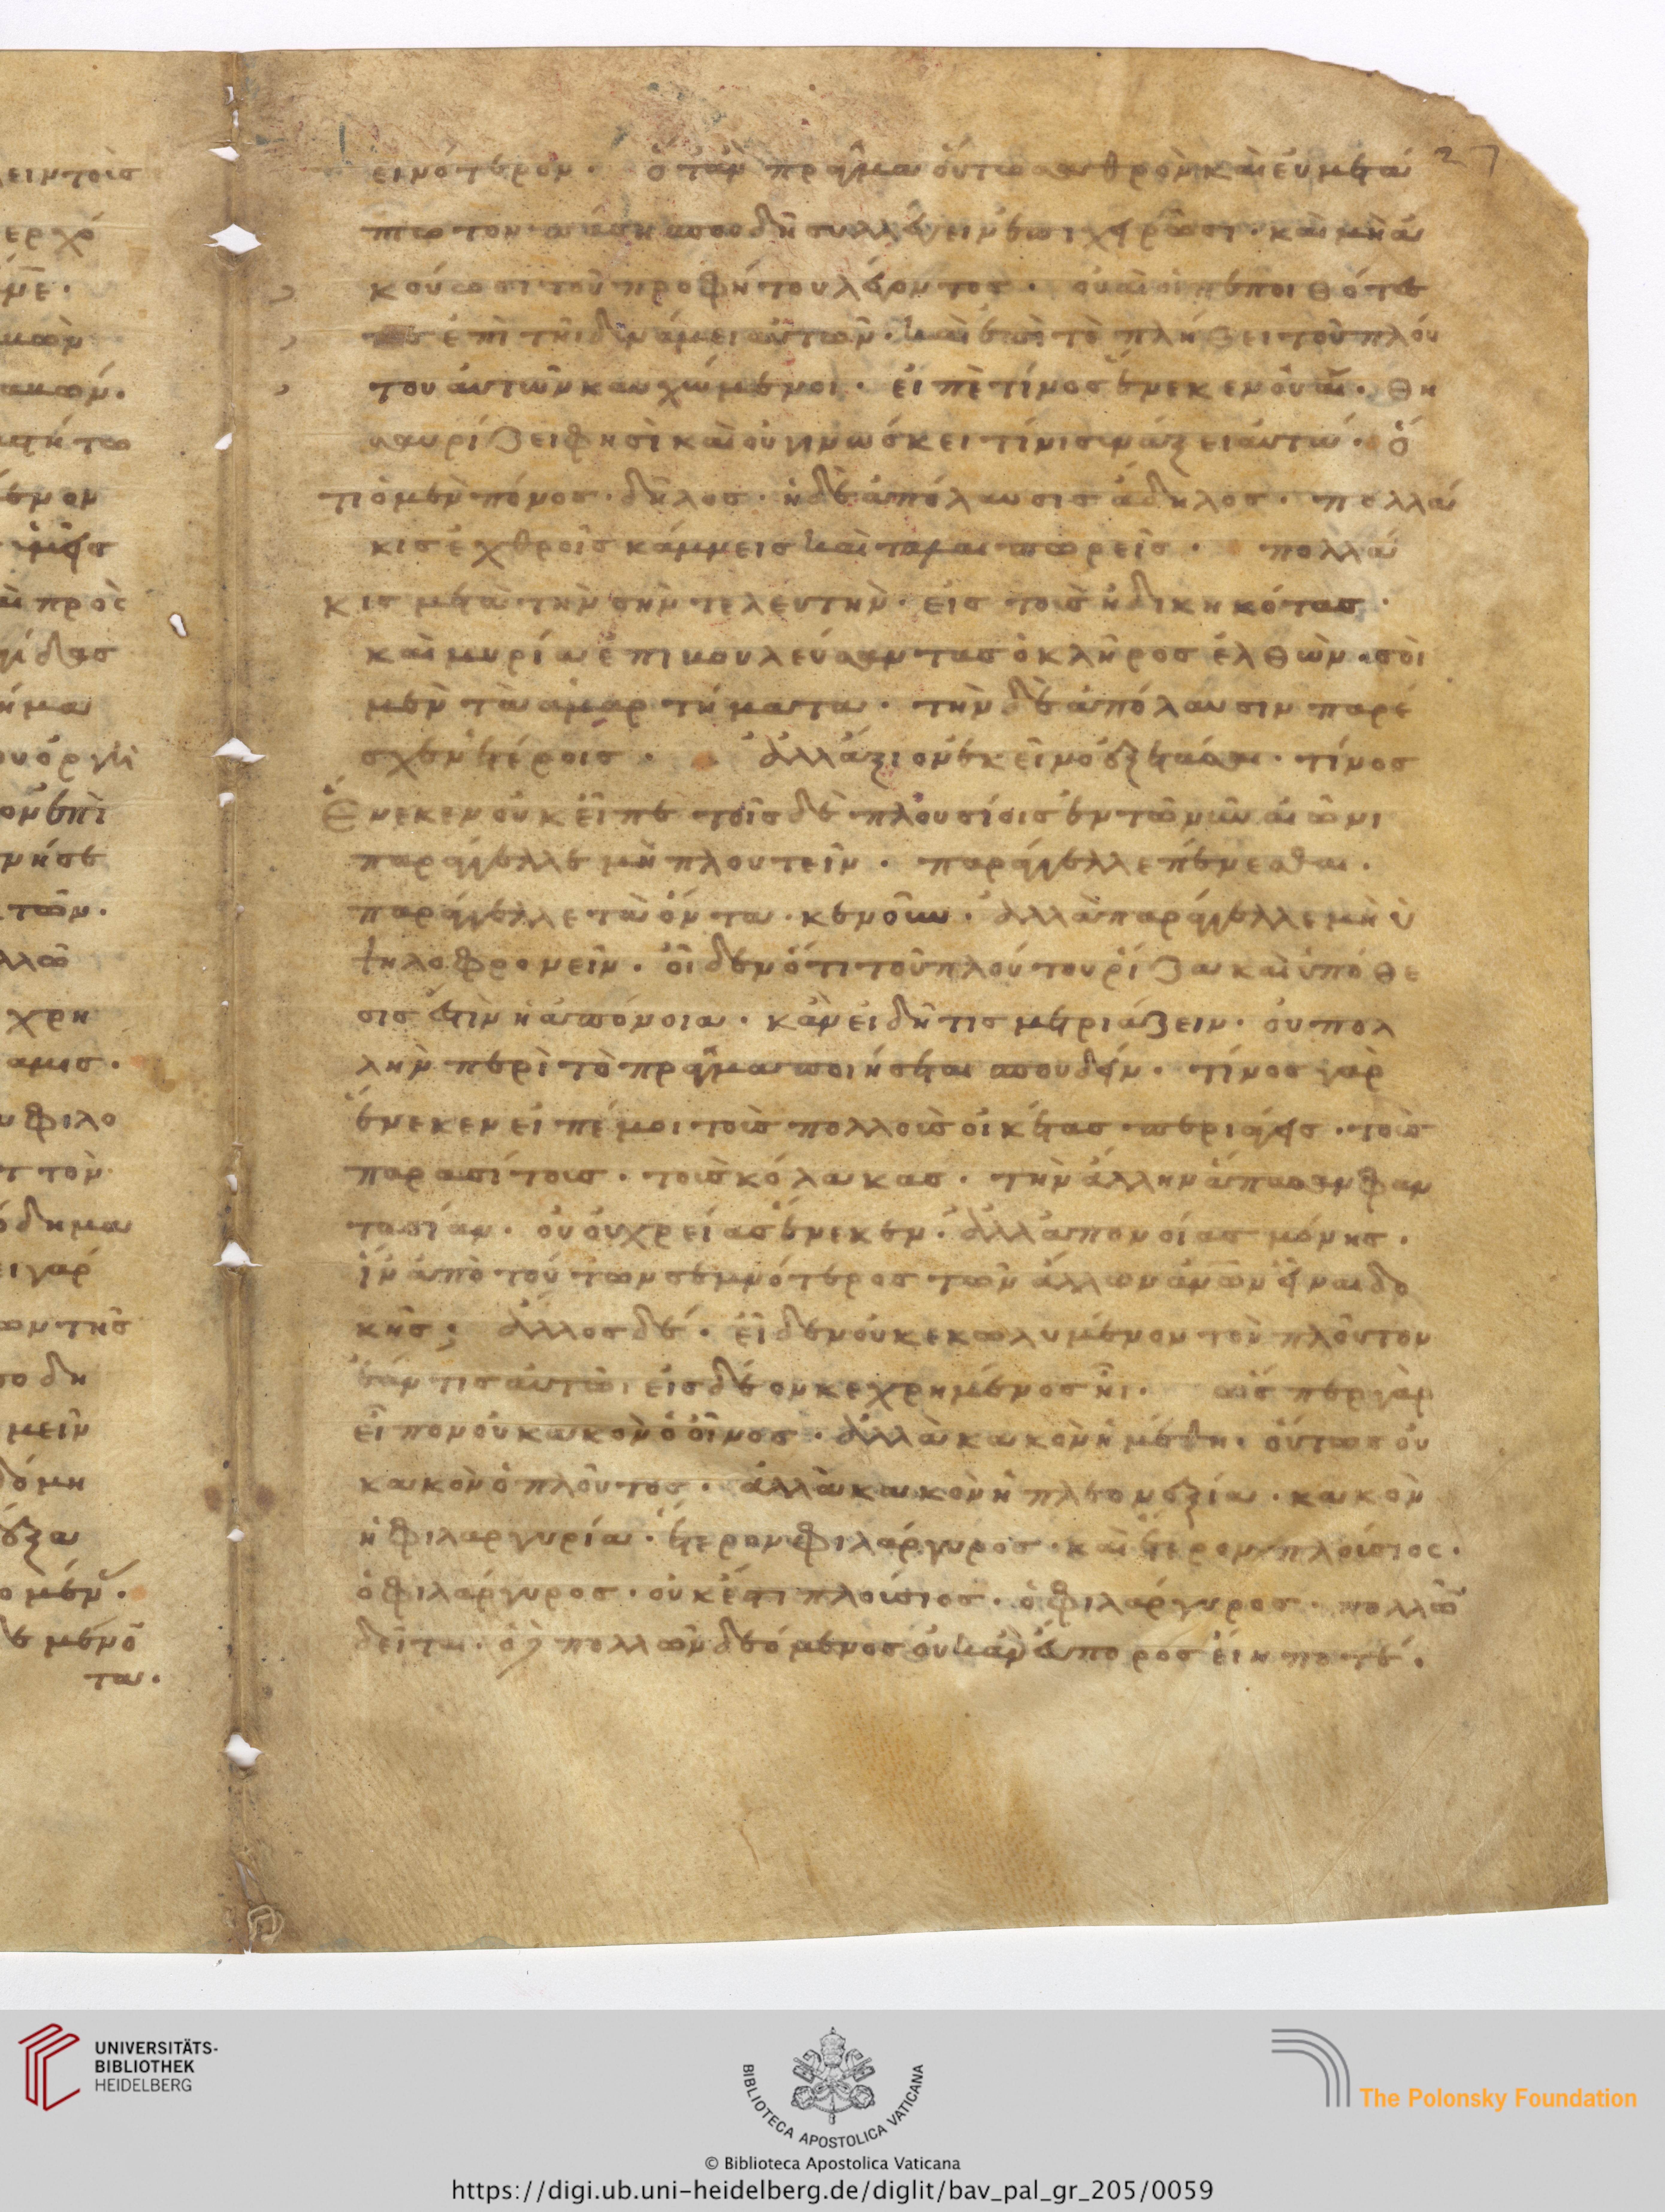 εινότερον. ὅταν πρᾶγμα οὕτω σαθρὸν καὶ εὐμετά
πτωτον ἁπάσηι σπουδῆι συλλέγειν ἐπιχειρῶσι. καὶ μὴ ἀ
κούωσι τοῦ προφήτου λέγοντος. οὐαὶ οἱ πεποιθότες
ἐπὶ τῆι δυνάμει αὐτῶν. καὶ ἐπὶ τὸ πλήθει τοῦ πλού
του αὐτῶν καυχώμενοι. εἰπὲ τίνος ἕνεκεν οὐαί. θη
σαυρίζει φησὶ καὶ οὐ γινώσκει τίνι συνάξει αὐτά. ὅ
τι ὁ μὲν πόνος. δῆλος. ἡ δὲ ἀπόλαυσις ἄδηλος. πολλά
κις ἐχθροῖς κάμνεις καὶ ταλαιπωρεῖς. πολλά
κις μετὰ τὴν σὴν τελευτὴν. εἰς τοὺς ἠδικηκότας.
καὶ μυρία ἐπιβουλεύσαντας ὁ κλῆρος ἐλθὼν. σοὶ
μὲν τὰ ἁμαρτήματα. τὴν δὲ ἀπόλαυσιν παρέ
σχεν ἑτέροις. ἀλλ' ἄξιον ἐκεῖνο ἐξετάσαι. τίνος
ἕνεκεν οὐκ εἶπε τοῖς δὲ πλουσίοις ἐν τῶ νῦν αἰῶνι
παράγγελλε μὴ πλουτεῖν. παράγγελλε πένεσθαι.
παράγγελλε τὰ ὄντα. κενοῦν. ἀλλὰ παράγγελλε μὴ ὑ
ψηλοφρονεῖν. οἶδεν ὅτι τοῦ πλούτου ῥίζα καὶ ὑπόθε
σις ἐστὶν ἡ ἀπόνοια. κἂν εἰδῆ τις μετριάζειν. οὐ πολ
λὴν περὶ τὸ πρᾶγμα ποιήσεται σπουδήν. τίνος γὰρ
ἕνεκεν εἰπέ μοι τοὺς πολλοὺς οἰκέτας περιάγεις. τοὺς
παρασίτους. τοὺς κόλακας. τὴν ἄλλην ἅπασαν φαν
τασίαν. οὐ οὐ χρείας ἕνεκεν. ἀλλ' ἀπονοίας μόνης.
ἵν' ἀπὸ τούτων σεμνότερος τῶν ἄλλων ἀνων εἶναι δο
κῆς; ἄλλος δέ. εἶδεν οὐ κεκωλυμένον τὸν πλοῦτον
ἐάν τις αὐτῶι εἰς δέον κεχρημένος ἦι. ὥσπερ γὰρ
εἶπον οὐ κακὸν ὁ οἶνος. ἀλλὰ κακὸν ἡ μέθη. οὕτως οὐ
κακὸν ὁ πλοῦτος. ἀλλὰ κακὸν ἡ πλεονεξία. κακὸν
ἡ φιλαργυρία. ἕτερον φιλάργυρος. καὶ ἕτερον πλούσιος.
ὁ φιλάργυρος. οὐκ ἔστι πλούσιος. ὁ φιλάργυρος. πολλῶν
δεῖται. ὁ πολλῶν δεόμενος οὐκ ἂν εὔπορος εἴη ποτέ.
27
UNIVERSITÄTS-
BIBLIOTHEK
HEIDELBERG
BIBLIOTECA APOSTOLICA VATICANA
The Polonsky Foundation
© Biblioteca Apostolica Vaticana
https://digi.ub.uni-heidelberg.de/diglit/bav_pal_gr_205/0059